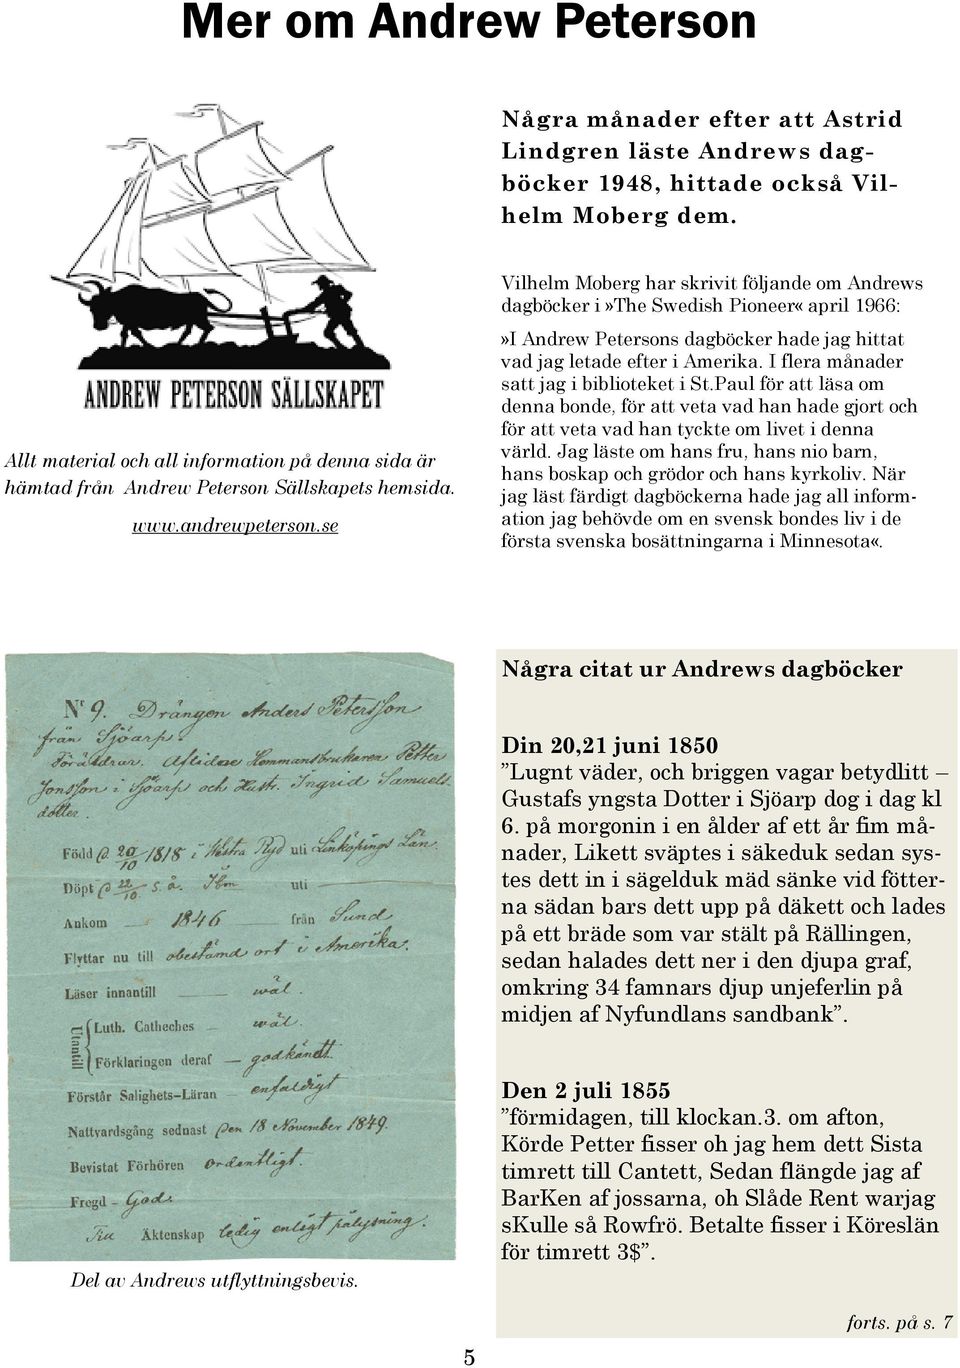 Mer om Andrew Peterson
Några månader efter att Astrid
Lindgren läste Andrews dag-
böcker 1948, hittade också Vil-
helm Moberg dem.
ANDREW PETERSON SÄLLSKAPET
Allt material och all information på denna sida är
hämtad från Andrew Peterson Sällskapets hemsida.
www.andrewpeterson.se
Vilhelm Moberg har skrivit följande om Andrews
dagböcker i »The Swedish Pioneer« april 1966:
»I Andrew Petersons dagböcker hade jag hittat
vad jag letade efter i Amerika. I flera månader
satt jag i biblioteket i St.Paul för att läsa om
denna bonde, för att veta vad han hade gjort och
för att veta vad han tyckte om livet i denna
värld. Jag läste om hans fru, hans nio barn,
hans boskap och grödor och hans kyrkoliv. När
jag läst färdigt dagböckerna hade jag all inform-
ation jag behövde om en svensk bondes liv i de
första svenska bosättningarna i Minnesota«.
Nr 9. Drängen Anders Petersson
från Sjöarp.
Föräldrar. Aflidne Hemmansbrukaren Petter
Jonsson i Sjöarp och Hustr. Ingrid Samuels
dotter.
Född d. 20/10 1818 i Westra Ryd uti Linköpings Län.
Döpt d 22/10 s. å. Ibm uti
Ankom 1846 från Sund
Flyttar nu till obestämd ort i Amerika.
Läser innantill wäl.
Utantill
Luth. Catheches wäl.
Förklaringen deraf – godkändt.
Förstår Salighets–Läran – enfaldigt
Nattvardsgång sednast den 18 November 1849.
Bevistat Förhören ordentligt.
Fregd – God.
Äktenskap ledig enligt pålysning.
Del av Andrews utflyttningsbevis.
Några citat ur Andrews dagböcker
Din 20,21 juni 1850
”Lugnt väder, och briggen vagar betydlitt –
Gustafs yngsta Dotter i Sjöarp dog i dag kl
6. på morgonin i en ålder af ett år fim må-
nader, Likett sväptes i säkeduk sedan sys-
tes dett in i sägelduk mäd sänke vid fötter-
na sädan bars dett upp på däkett och lades
på ett bräde som var stält på Rällingen,
sedan halades dett ner i den djupa graf,
omkring 34 famnars djup unjeferlin på
midjen af Nyfundlans sandbank”.
Den 2 juli 1855
”förmidagen, till klockan.3. om afton,
Körde Petter fisser oh jag hem dett Sista
timrett till Cantett, Sedan flängde jag af
BarKen af jossarna, oh Slåde Rent warjag
sKulle så Rowfrö. Betalte fisser i Köreslän
för timrett 3$”.
forts. på s. 7
5